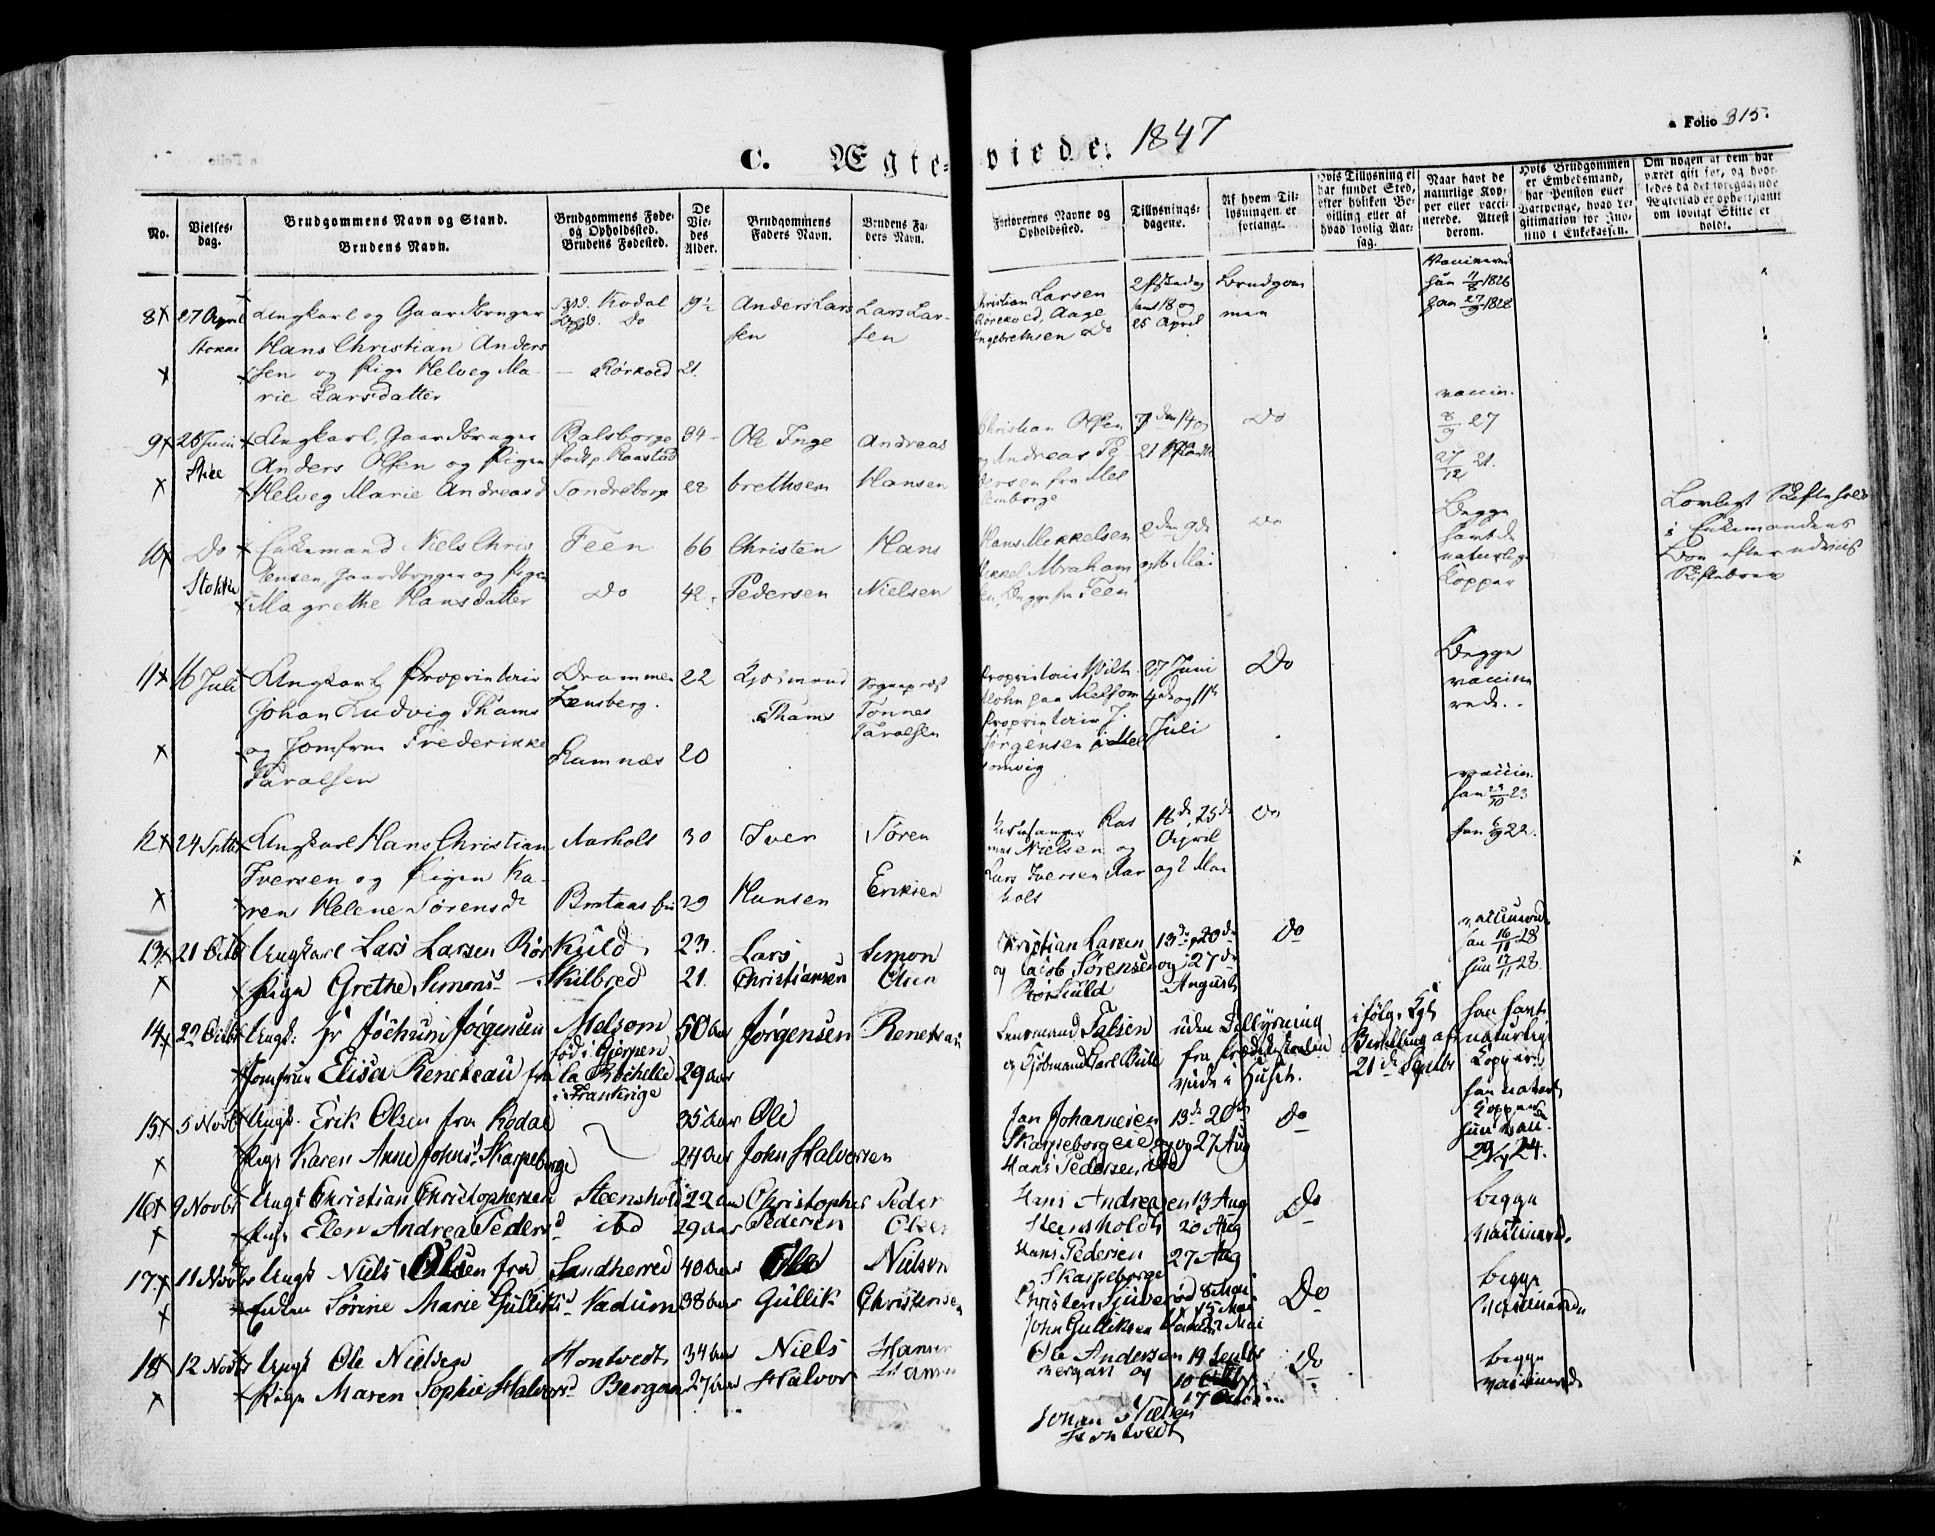 a Folio 315.
C. Ægteviede. 1847
No.
Vielses-
dag.
Brudgommens Navn og Stand.
Brudens Navn.
Brudgommens Føde-
og Opholdssted.
Brudens Fødested.
De
Vie-
des
Alder.
Brudgommens
Faders Navn.
Brudens Fa-
ders Navn.
Forlovernes Navne og
Opholdssted.
Tillysnings-
dagene.
Af hvem Til-
lysningen er
forlangt.
Hvis Tillysning ei
har fundet Sted,
efter hvilken Be-
villing eller af
hvad lovlig Aar-
sag.
Naar havt de
naturlige Kop-
per eller vacci-
nerede. Attest
derom.
Hvis Brudgommen
er Embedsmand,
har Pension eller
Vartpenge, hvad Le-
gitimation for Ind-
skud i Enkekassen.
Om nogen af dem har
været gift før, og hvor-
ledes da det foregaaende
Ægteskab er ophørt samt
om lovligt Skifte er
holdt.
8 27 April
Ungkarl og Gaardbruger
Hans Christian Anders
sen og Pige Helveg Ma-
rie Larsdatter
Kodal
Do
Rørkold
21.
Anders Lars
sen
Lars Lar-
sen
Christian Larsen
Rørkold, Aage
Ingebrethsen Do
18 og
25 April
Brudgom
men
Vaccinered
han 11/8 1826
hun 27/9 1828
9 26 Juni
Ungkarl, Gaardbruger
Anders Olsen og Pigen
Helveg Marie Andreasd
Raastad
Sondreborge
34
28
Ole Inge
brethsen
Andreas
Hansen
Christian Olsen
og Andreas Pe
dersen fra
Do
vaccin.
8/9 27
27/12 21.
10 Do
Stokke
Enkemand Niels Chris
tensen Gaardbruger og Pigen
Magrethe Hansdatter
Feen
Do
66
42
Christen
Pedersen
Hans
Nielsen
Hans Mikkelsen
Mikkel Abraham
sen, Begge fra Feen
2den 9de
og 16 Mai
Do
Begge
havt de
naturlige
Kopper
Lovligt Skifte holdt
i Enkemandens
Boe efter udviist
Skiftebrev
11 16 Juli
Ungkarl Proprietair
Johan Ludvig Thams
og Jomfrue Frederikke
Taralsen
Drammen
Ramnæs
22
20
Thams
Sognepræst
Tønnes
Taralsen
Proprietair
Melsom
Proprietair J.
Jørgensen
27 Juni
4de og 11te
Juli
Do
Begge
vaccine
rede.
12 24 Septbr
Ungkarl Hans Christian
Iversen og Pigen Ka-
ren Helene Sørensd
Aarholt
30
29
Iver
Hansen
Søren
Eriksen
Ras
mus Nielsen og
Lars Iversen Aar
holt
18de, 25de
April
og 2 Mai
Do
vaccin.
han 23/10 23
hun 6/9 22.
13 21 Octbr
Ungkarl Lars Larsen Rørkuld
Pige Grethe Simonsd Skilbred
23.
21.
Lars
Christiansen
Simon
Olsen
Christian Larsen
og Jacob Sørensen
Rørkuld
13de, 20de
og 27de
August
Do
vaccinerede
han 16/11 28
hun 17/11 28.
14 22 Octbr
Ungk: Hr Jochum Jørgensen
Jomfrue Elisa Reneteau fra
Melsom
fød i Gjerpen
la Rochelle
i Frankrige
50 Aar
29 Aar
Jørgensen
Reneteau
Lensmand Falsen
og Kjøbmand Carl Bull
uden Tillysning
fra Prædikestolen
viede i Huset.
ifølge Kgl
Bevilling af
21de Septbr
han havt
naturlige
Kopper.
15 5 Novbr
Ungk. Erik Olsen fra Kodal
Pige Karen Anne Johnsd Skarpeborge
35 Aar
24 Aar
Ole
John Halvorsen
Jan Johannesen
Skarpeborgeie og
Hans Pedersen ibd
13de 20de
og 27 Aug
Do
han naturl.
Kopper
hun vacc.
16 9 Novbr
Ungk Christian Christophersen
Pige Elen Andrea Pedersd
Steensholt
ibd
22 Aar
29 Aar
Christopher
Pedersen
Peder
Olsen
Hans Andreasen
Steensholdt
Hans Pedersen
Skarpeborge
13 Aug
20 Aug
27 Aug
Do
begge
vaccinered.
17 11 Novbr
Ungk Niels Olsen fra
Enken Sørine Marie Gulliksd
Sandherred
Vadum
40 Aar
38 Aar
Ole
Gullik
Nielsen
Christensen
Christen
John Gulliksen
8 Mai
15 Mai
22 Mai
Do
begge
vaccinerede
18 12 Novbr
Ungk Ole Nielsen
Pige Maren Sophie Halvorsd
Hontvedt
Bergan
34 Aar
27 Aar
Niels
Halvor
Hansen
Hansen
Ole Andersen
Bergan og
Johan Nielsen
Hontvedt
19 Septbr
10 Octbr
17 Octbr
Do
begge
vaccinerede